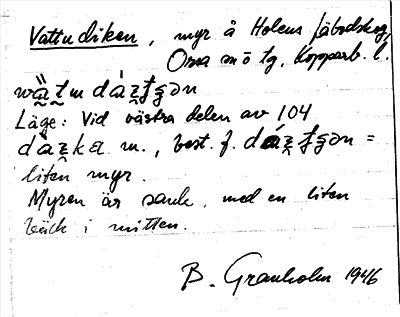 Vattudiken, myr å Holens fäbodskog,
Orsa sn ö tg, Kopparb. l.
Läge: Vid västra delen av 104
m., best. f. =
liten myr.
Myren är sank, med en liten
bäck i mitten.
B. Granholm 1946